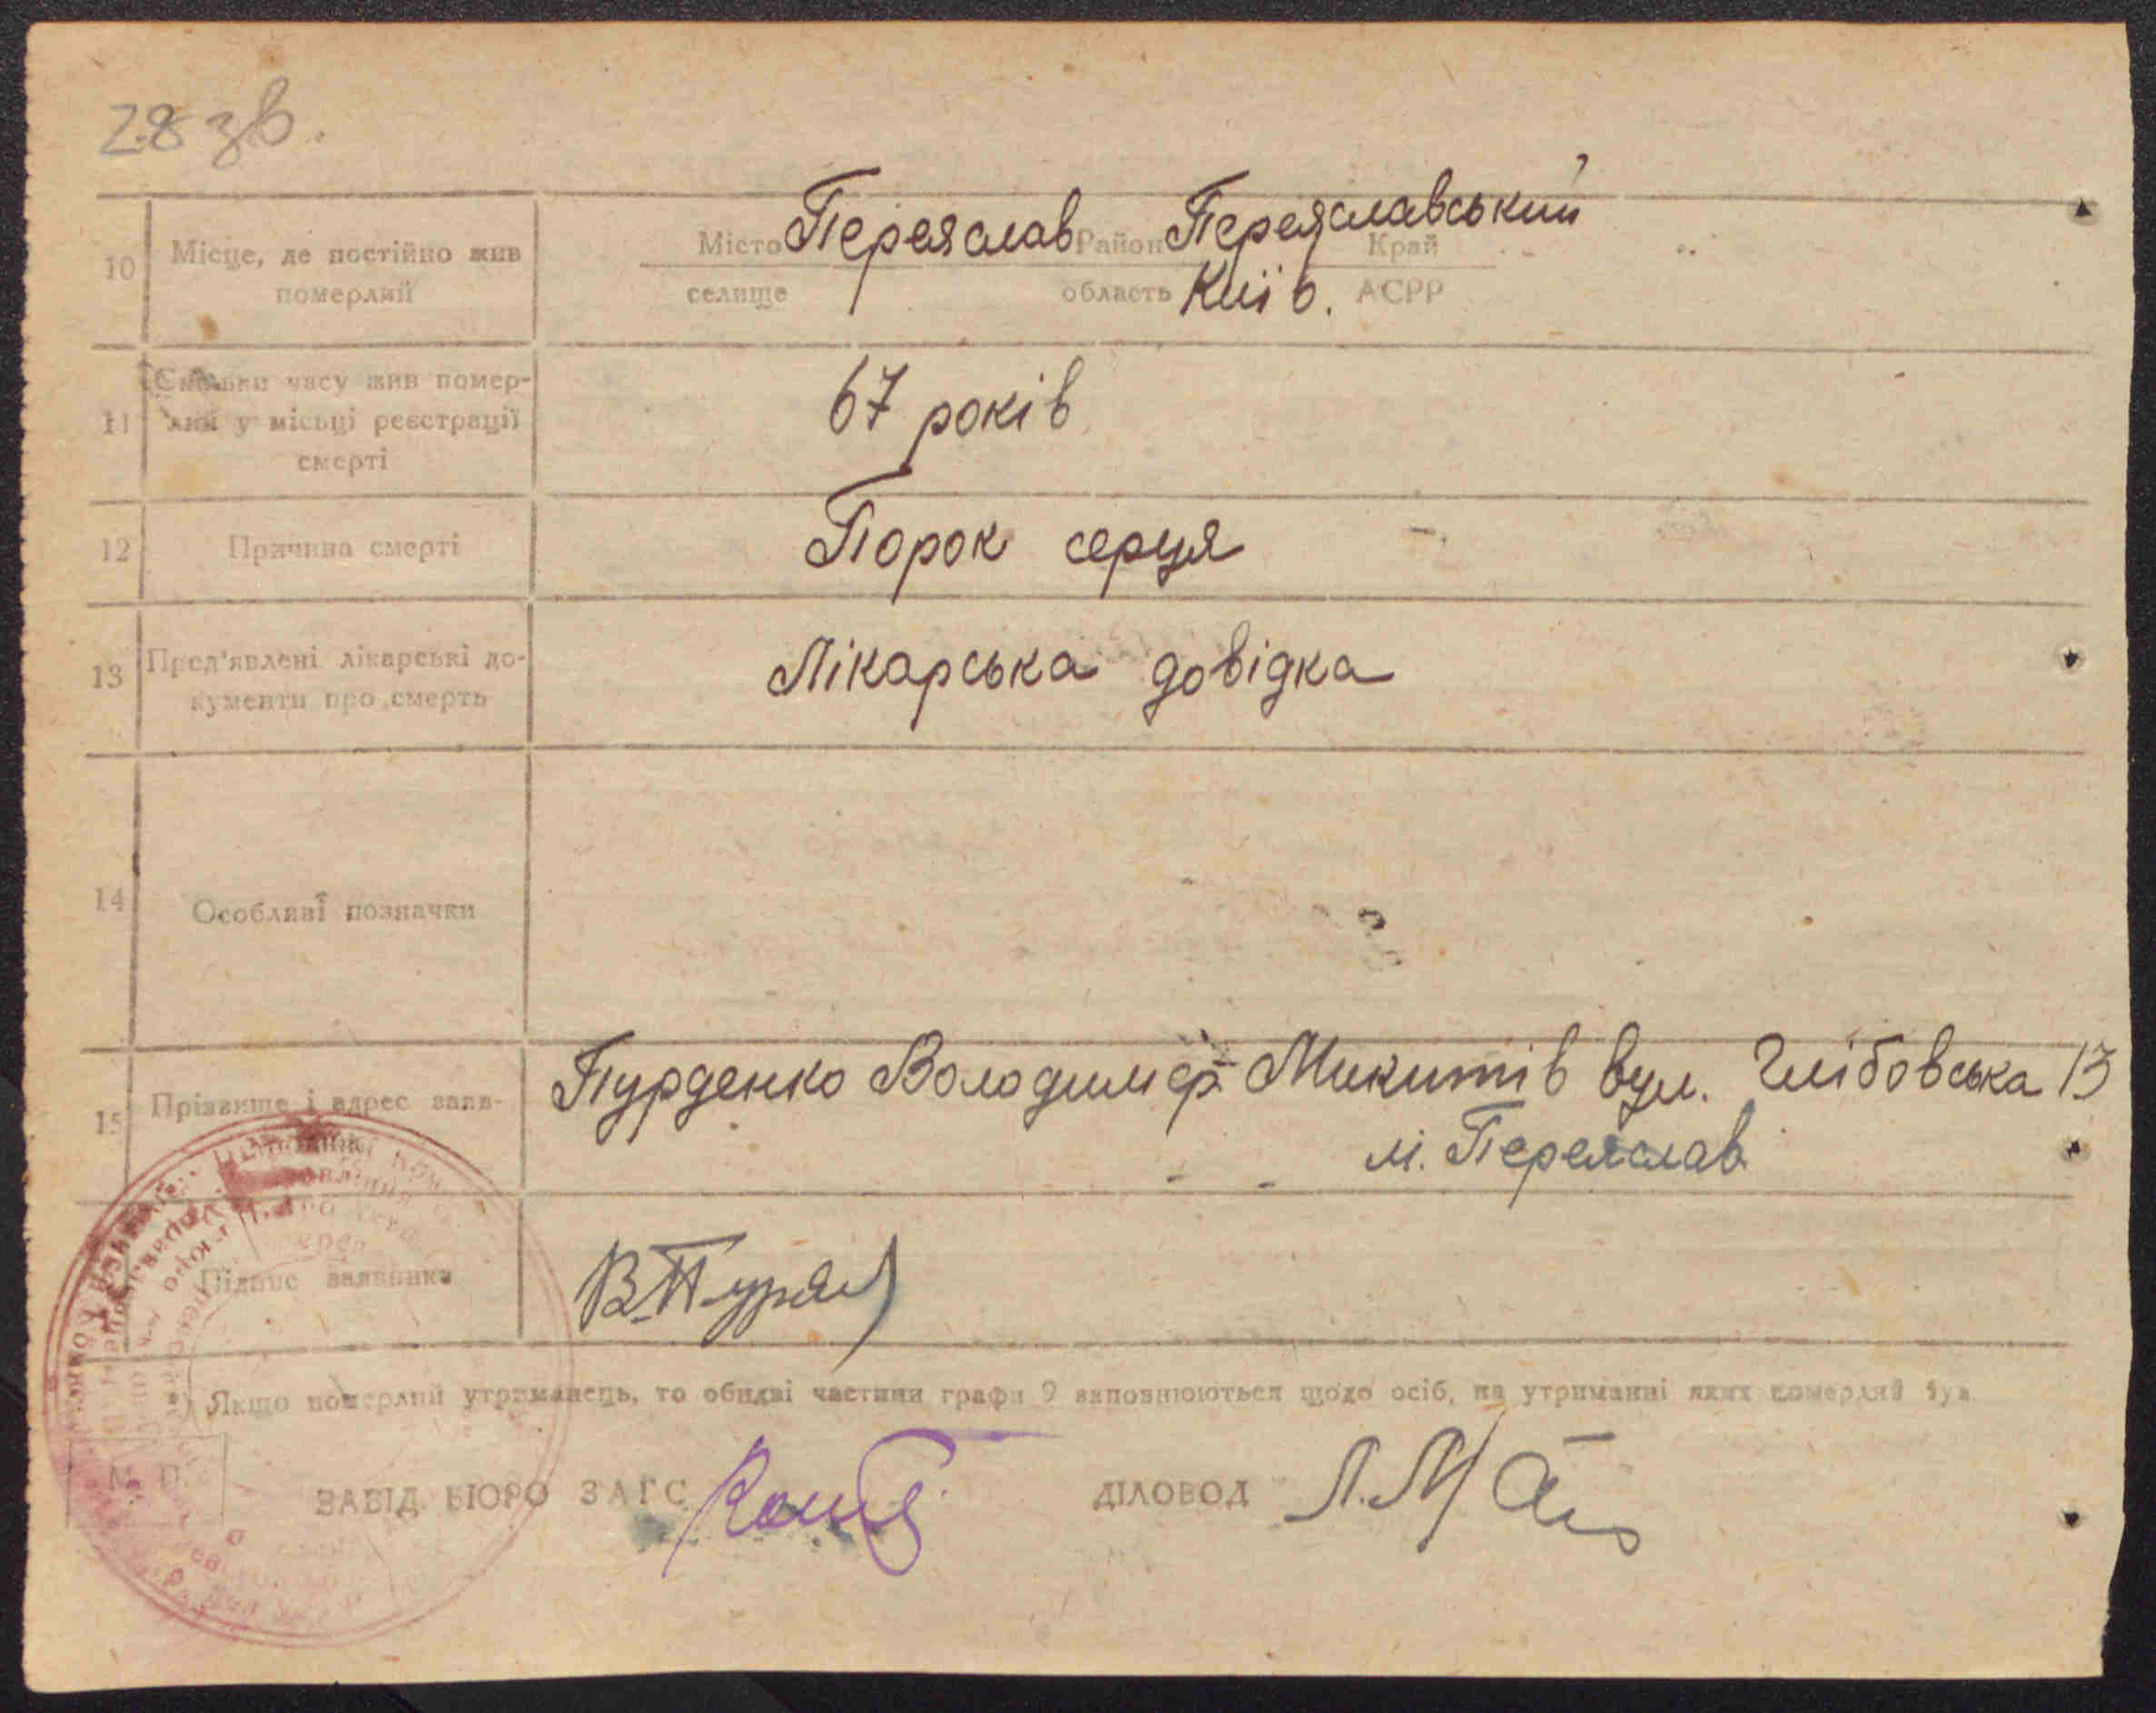 28 зв.
10 Місце, де постійно жив померлий
Місто Переяслав Район Переяславський Край
селище область Київ. АСРР
11 Скільки часу жив помер-
лий у місьці реєстрації
смерті
67 років
12 Причина смерті Порок серця
13 Пред'явлені лікарські до-
кументи про смерть
Лікарська довідка
14 Особливі позначки
15 Прізвище і адрес заяв-
Пурденко Володимир Микитів вул. Глібовська 13
м. Переяслав
Підпис заявника
*) Якщо померлий утриманець, то обидві частини графи 9 заповнюються щодо осіб, на утриманні яких померлий був
М. П.
ЗАВІД. БЮРО ЗАГС ДІЛОВОД